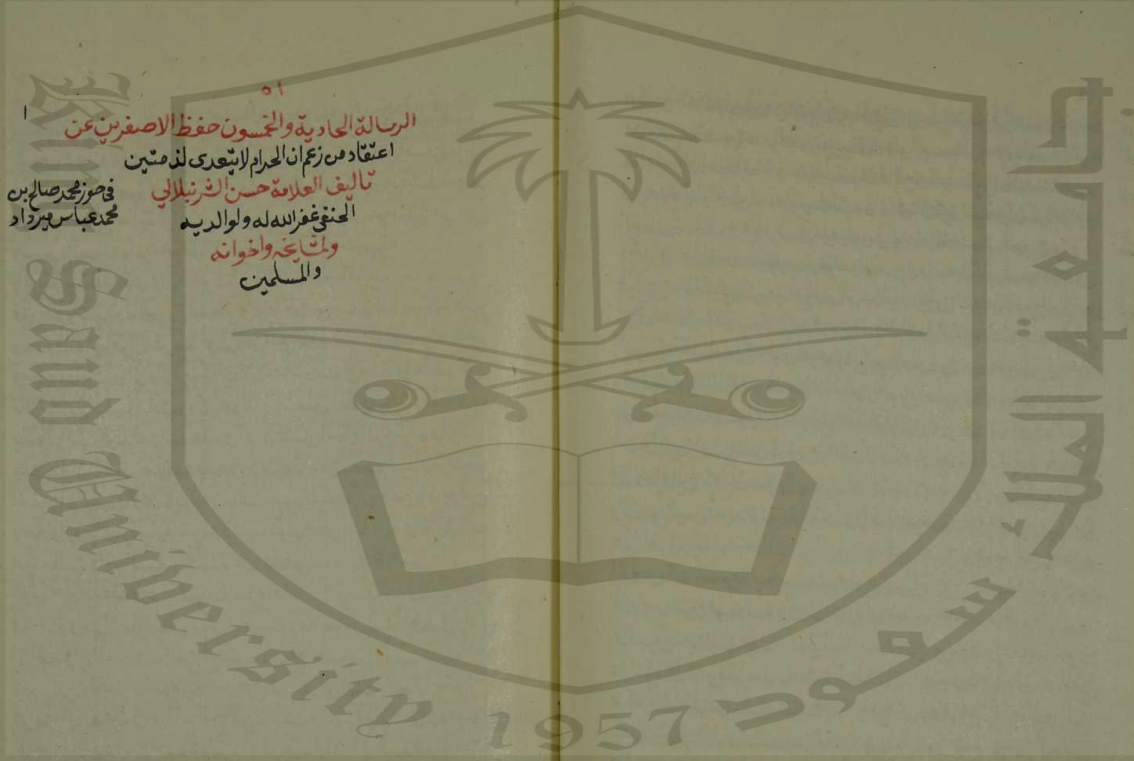 ٥١
١
الرسالة الحادية والخمسون حفظ الاصغرين عن
اعتقاد من زعم ان الحرام لا يتعدى لذمتين
تاليف العلامة حسن الشرنبلالي
الحنفي غفر الله له ولوالديه
ولمشايخه واخوانه
والمسلمين
في حوز محمد صالح بن
محمد عباس ميرداد
جامعة الملك سعود
King Saud University
1957